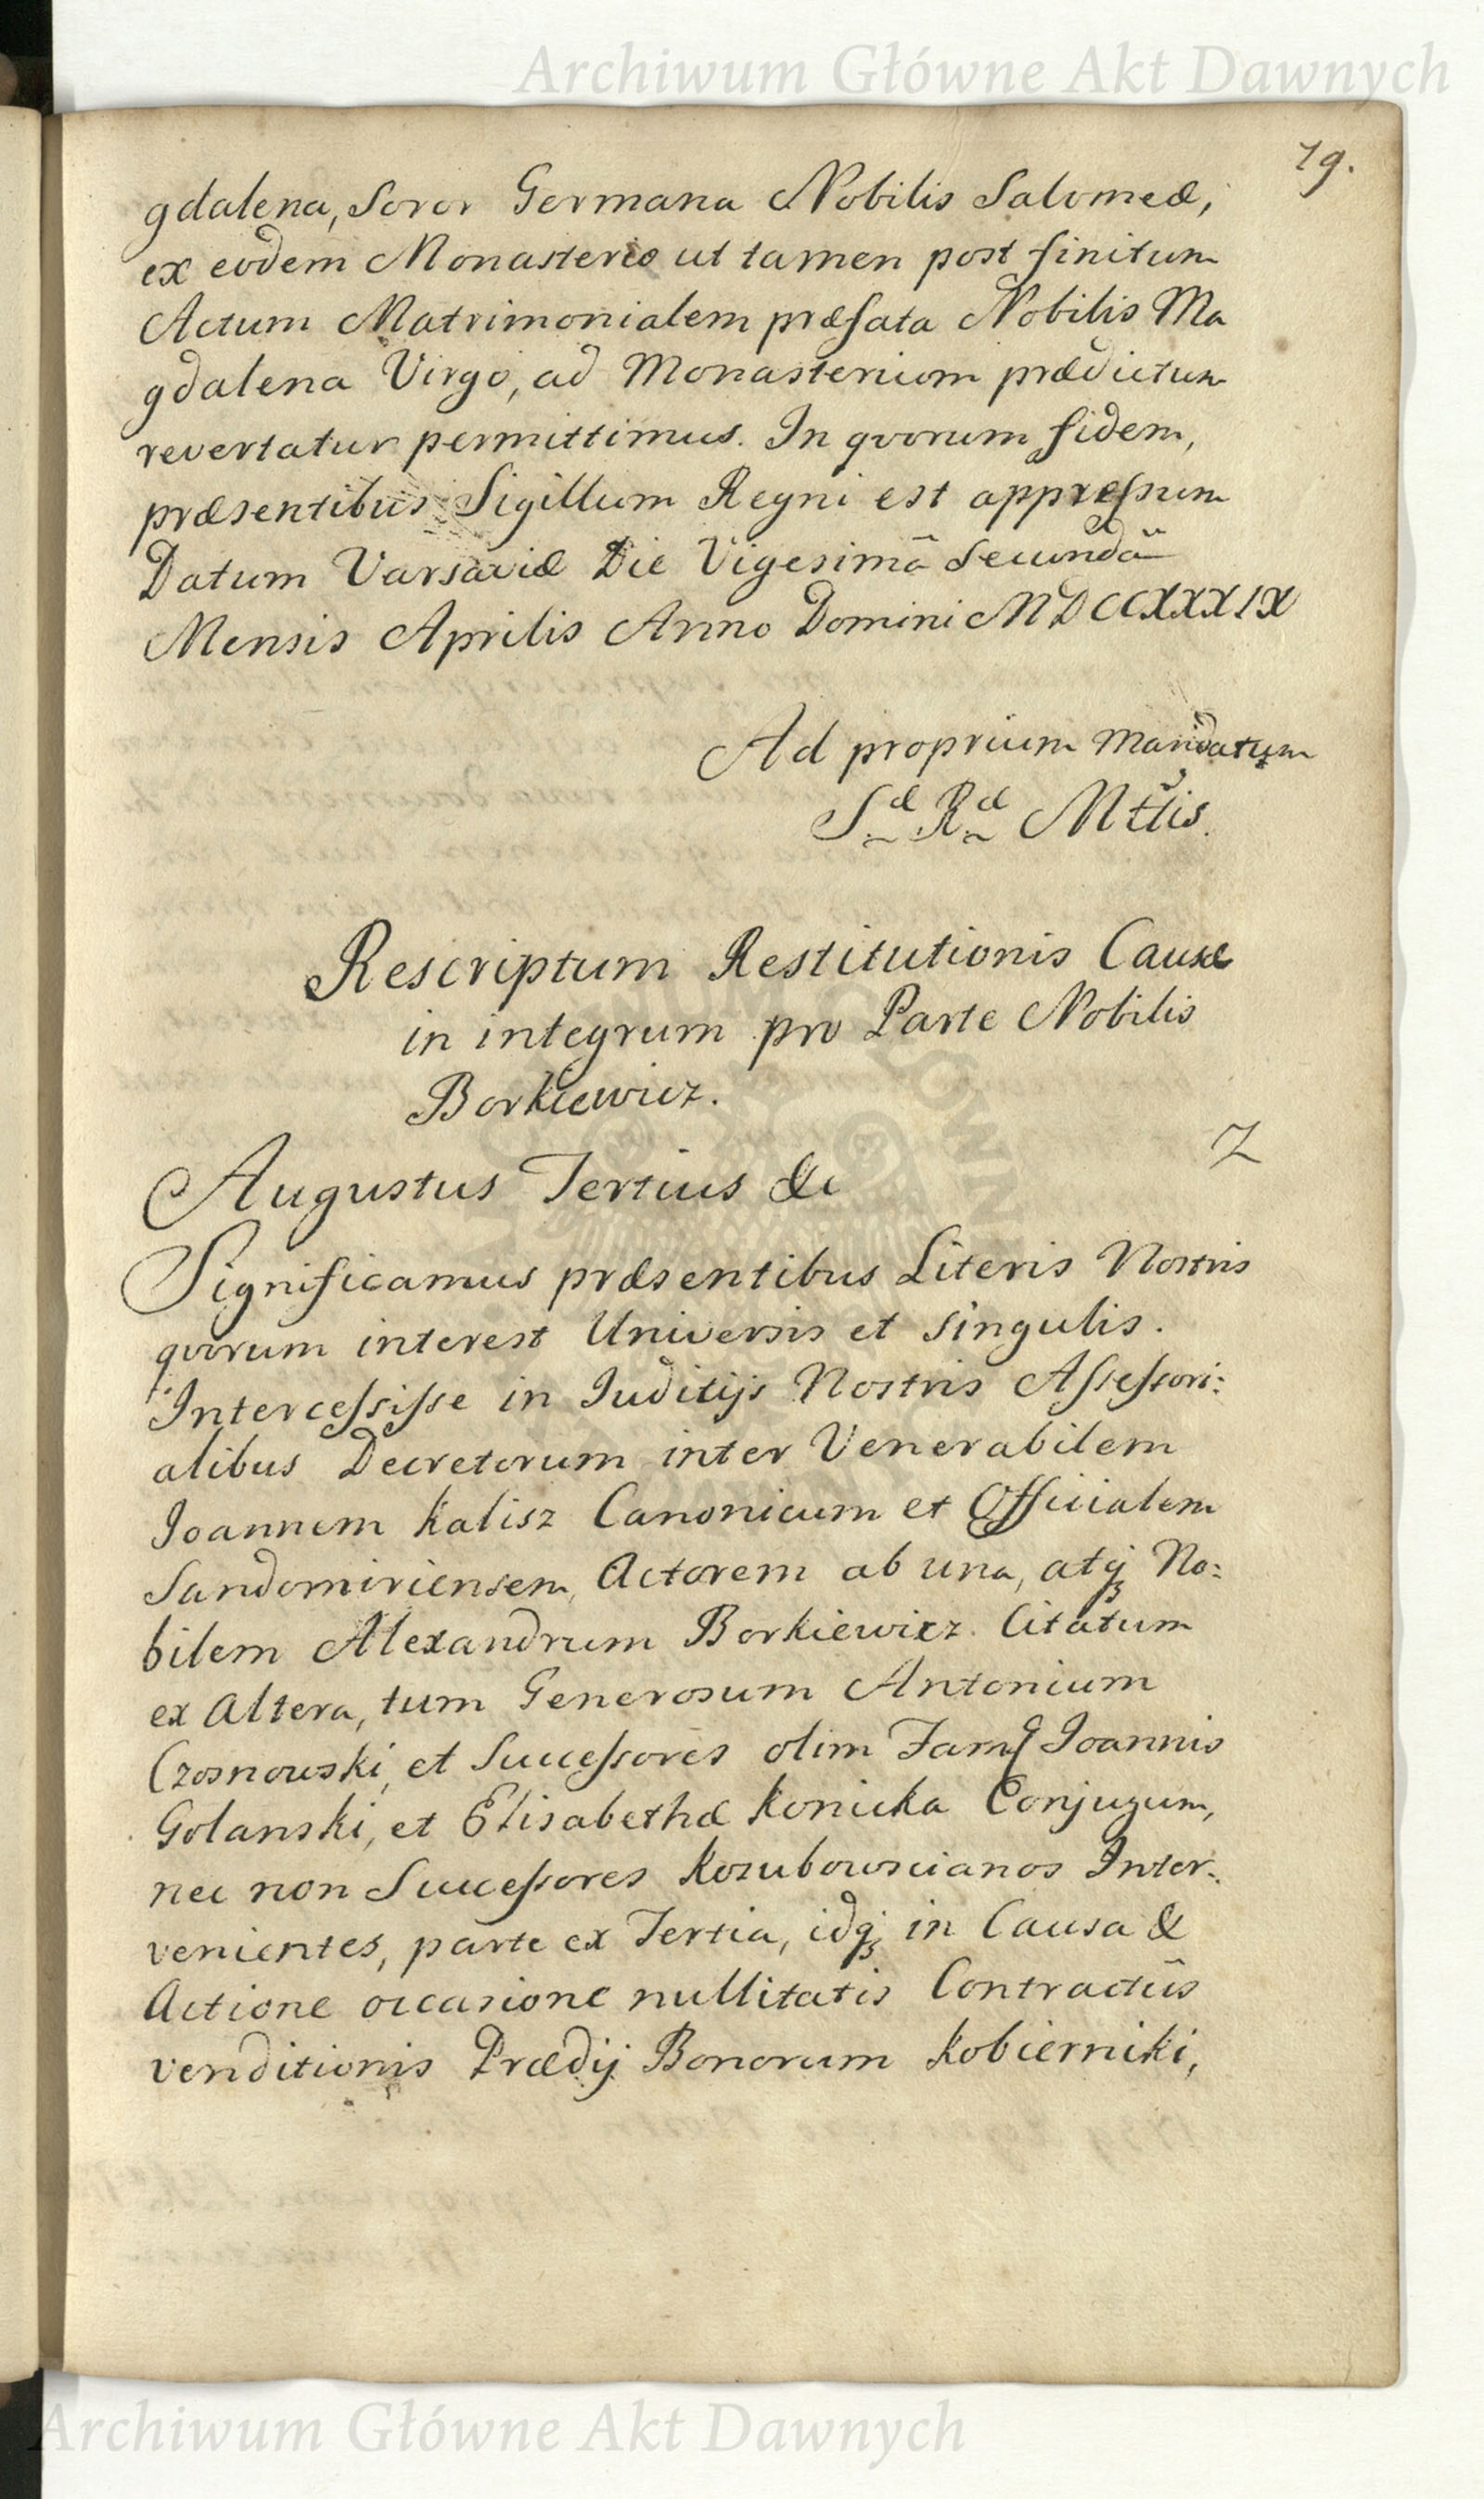 Archiwum Główne Akt Dawnych
19.
gdalena, Soror Germana Nobilis Salomeæ,
ex eodem Monasterio ut tamen post finitum
Actum Matrimonialem præfata Nobilis Ma
gdalena Virgo, ad Monasterium prædictum
revertatur permittimus. In qvorum fidem,
præsentibus Sigillum Regni est appressum
Datum Varsaviæ Die Vigesimâ Secundâ
Mensis Aprilis Anno Domini MDCCXXXIX
Ad proprium Mandatum
Sæ Ræ Mttis.
Rescriptum Restitutionis Causæ
in integrum pro Parte Nobilis
Borkiewicz.
Augustus Tertius &c
Significamus præsentibus Literis Nostris
qvorum interest Universis et Singulis.
Intercessisse in Juditijs Nostris Assessori:
alibus Decretorum inter Venerabilem
Joannem Kalisz Canonicum et Officialem
Sandomiriensem, Actorem ab una, atq; No:
bilem Alexandrum Borkiewicz Citatum
ex Altera, tum Generosum Antonium
Czosnowski, et Successores olim Joannis
Golanski, et Elisabethæ Konicka Conjugum,
nec non Successores Kozubowscianos Inter:
venientes, parte ex Tertia, idq; in Causa &
Actione occasione nullitatis Contractûs
venditionis Prædij Bonorum Kobierniki,
Archiwum Główne Akt Dawnych